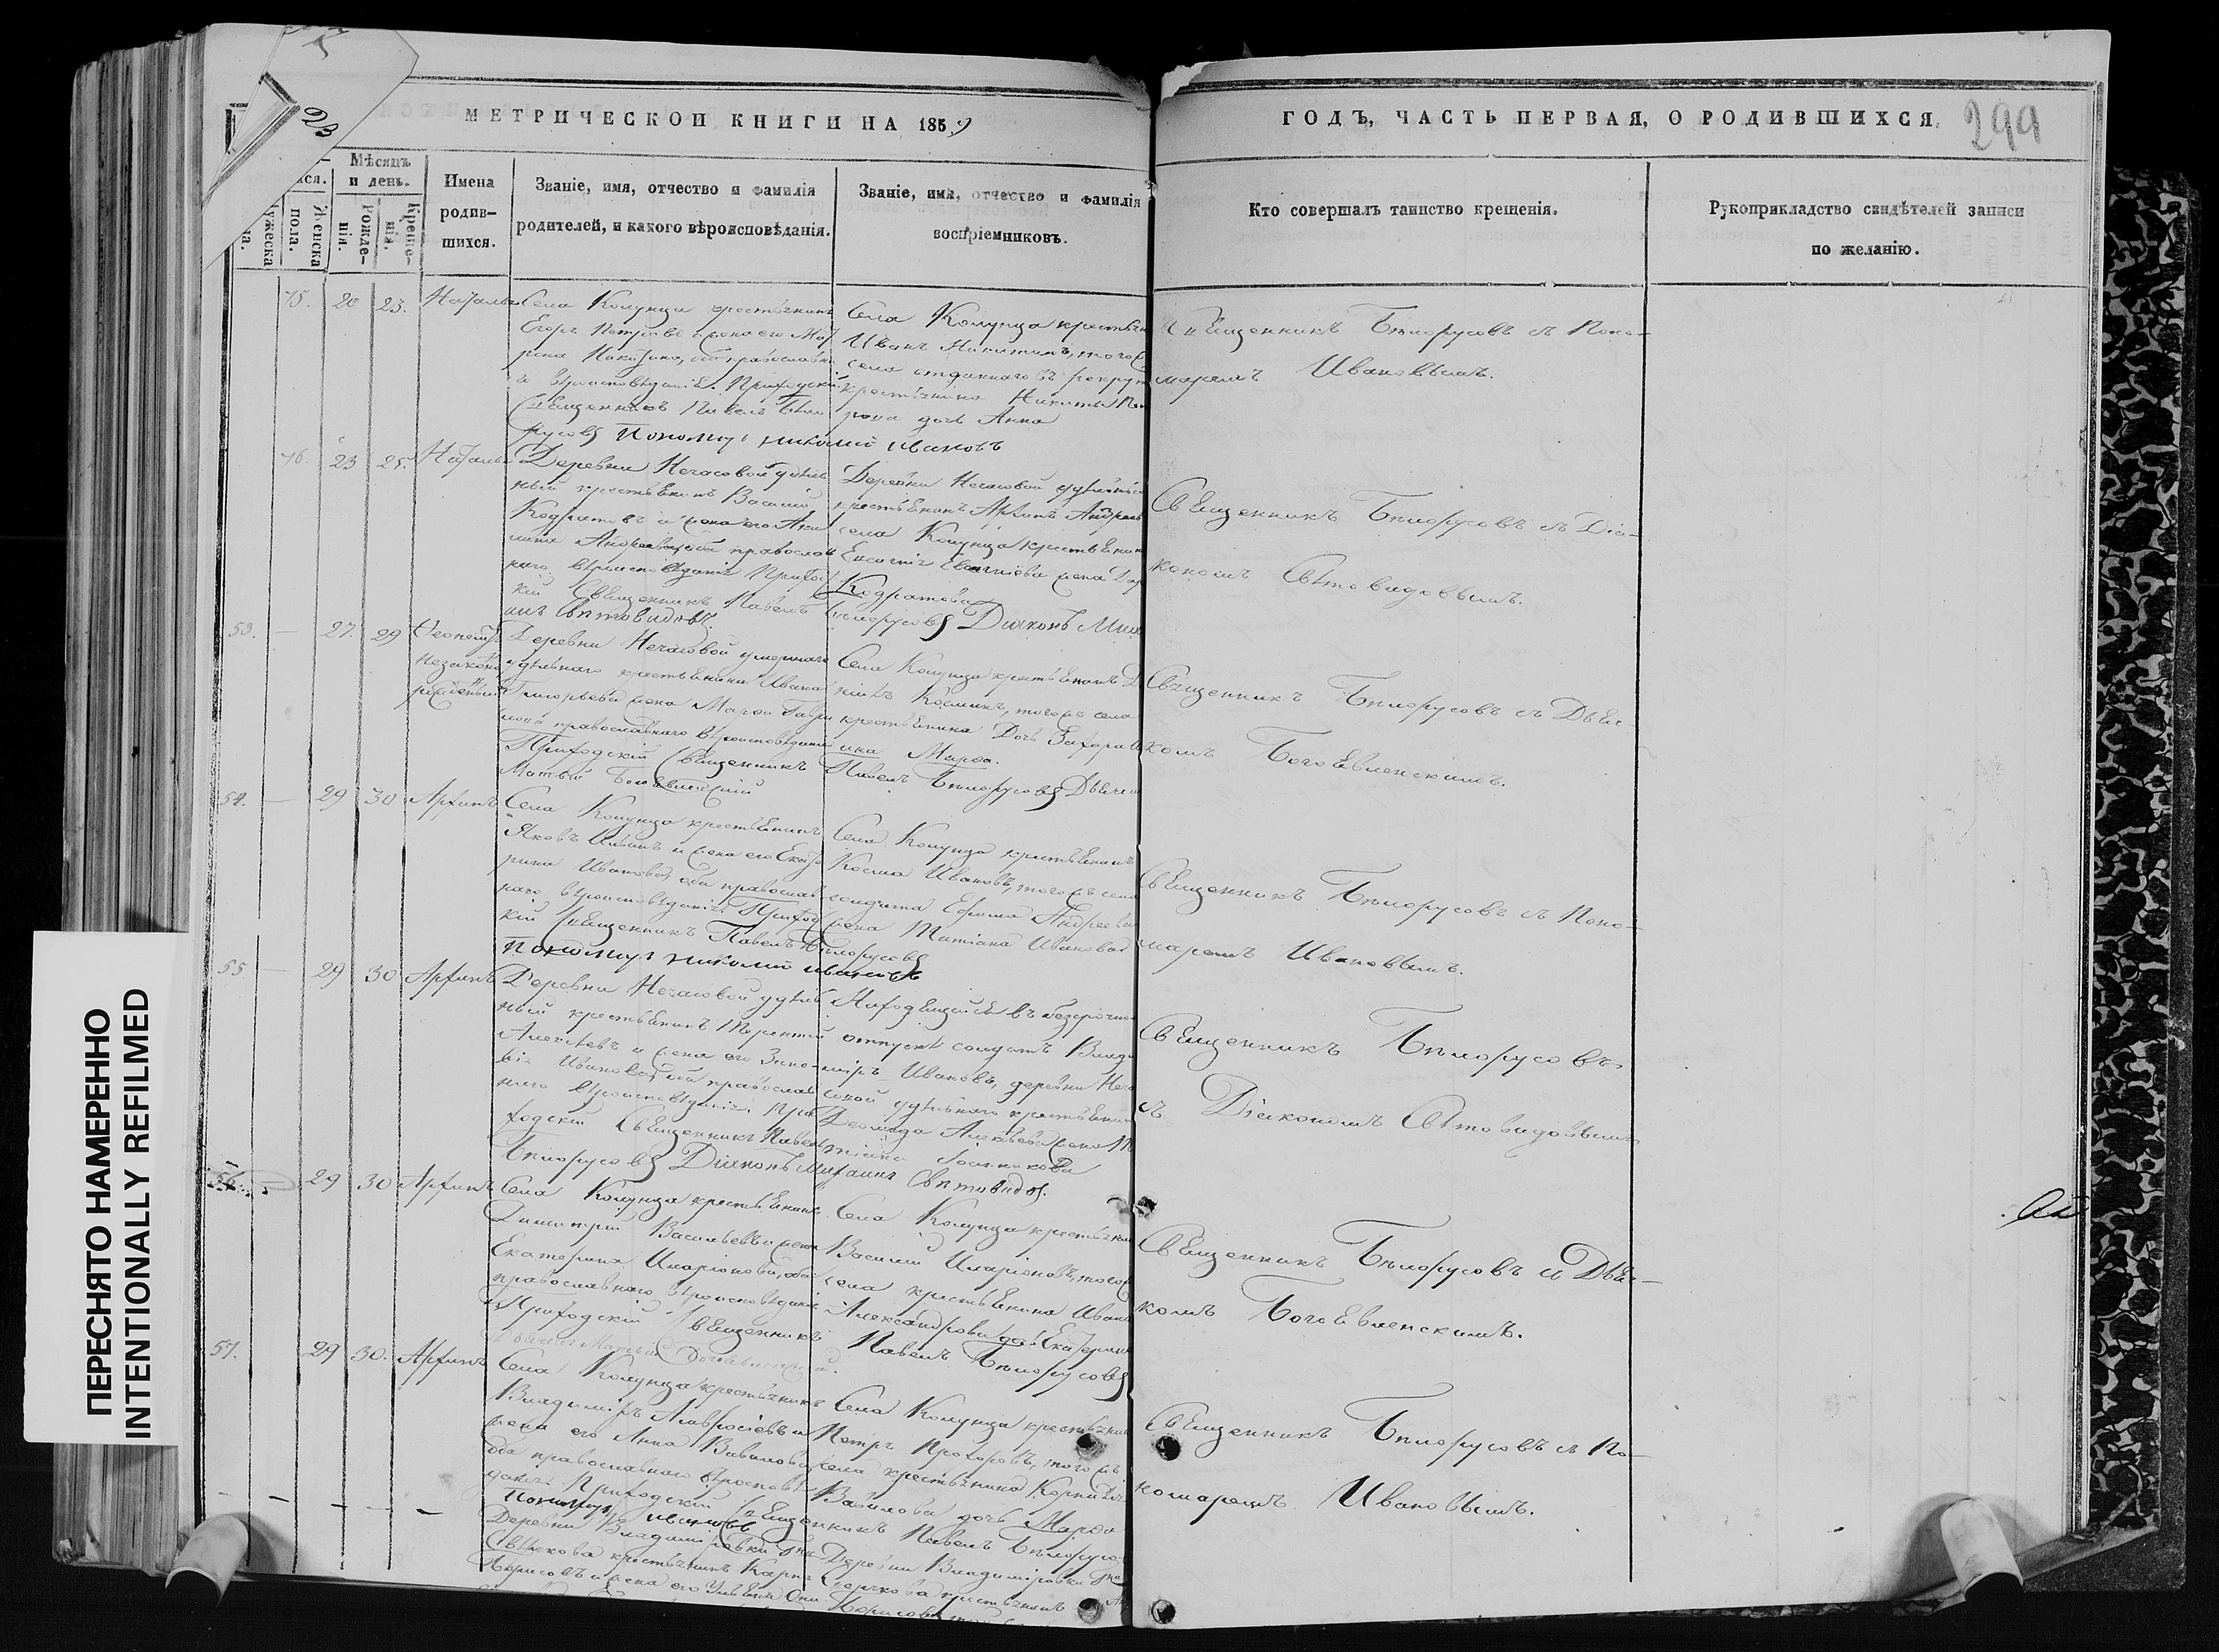 МЕТРИЧЕСКОЙ КНИГИ НА 1859
ГОДЪ, ЧАСТЬ ПЕРВАЯ, О РОДИВШИХСЯ.
299
23
Мѣсяцъ
и день.
Рожде-
нія.
Креще-
нія.
Женска
пола.
Имена
родив-
шихся.
Званіе, имя, отчество и фамилія
родителей, и какого вѣроисповѣданія.
Званіе, имя, отчество и фамилія
воспріемниковъ.
Кто совершалъ таинство крещенія.
Рукоприкладство свидѣтелей записи
по желанію.
75. 20 23.
Села Колунца крестьянинъ
Егоръ Петровъ и жена его Мат
рона Никитина, оба православна
го вѣроисповѣданія. Приходскій
Священникъ Павелъ Бѣло
русовъ Пономарь Николай Ивановъ
Села Колунца крестьян
Иванъ Никитинъ, того ж
села отданнаго въ рекрут
крестьянина Никиты
дочь Анна
Священникъ Бѣлорусовъ съ Поно-
маремъ Ивановымъ.
76. 23 25.
Деревни Нечасовой удѣль
ный крестьянинъ Василій
Кодратовъ и жена его Аку
лина Андреева, оба православ
наго вѣроисповѣданія Приход
кій Священникъ Павелъ Бѣлорусовъ Діаконъ Миха
илъ Свѣтовидовъ.
Деревни Нечасовой удѣльный
крестьянинъ Архипъ Андреев
села Колунца крестьянин
Кодратова
Священникъ Бѣлорусовъ съ Діа-
кономъ Свѣтовидовымъ.
53. — 27. 29
Незакон
рожденный
Деревни Нечасовой умершаго
удѣльнаго крестьянина Ивана
Григорьева жена Марфа Гаври
лова православнаго вѣроисповѣданія
Приходскій Священникъ Павелъ Бѣлорусовъ Дьячекъ
Матвѣй Богоявленскій
Села Колунца крестьянинъ
того жъ села
крестьянина Дочь Захара
Марфа.
Священникъ Бѣлорусовъ съ Дьяч-
комъ Богоявленскимъ.
54. — 29 30 Архипъ
Села Колунца крестьянинъ
Яковъ Ильинъ и жена его Екате
рина Иванова, оба православ
наго вѣроисповѣданія Приходс
кій Священникъ Павелъ Бѣлорусовъ
Пономарь Николай Ивановъ
Села Колунца крестьянинъ
Косма Ивановъ, того жъ села
солдата Ефима Андреева
жена Татіана Иванова
Священникъ Бѣлорусовъ съ Поно-
маремъ Ивановымъ.
55 — 29 30 Архипъ
Деревни Нечасовой удѣль
ный крестьянинъ Терентій
Алексѣевъ и жена его Зино-
вія Иванова, оба православ
наго вѣроисповѣданія. При
ходскій Священникъ Павелъ
Бѣлорусовъ Діаконъ Михаилъ Свѣтовидовъ.
Находящійся въ безсрочно
отпуску солдатъ Влади
міръ Ивановъ, деревни Неча
совой удѣльнаго крестьянин
Деомида Алексѣева жена
Священникъ Бѣлорусовъ
съ Діакономъ Свѣтовидовымъ
56. — 29 30 Архипъ
Села Колунца крестьянинъ
Димитрій Васильевъ и жена
Екатерина Иларіонова, оба
православнаго вѣроисповѣданія
Приходскій Священникъ Павелъ Бѣлорусовъ
Дьячекъ Матвѣй Богоявленскій.
Села Колунца крестьянин
Василій Иларіоновъ, того ж
села крестьянина Ивана
Александрова дочь Екатерина
Священникъ Бѣлорусовъ съ Дьяч-
комъ Богоявленскимъ.
57. 29 30. Архипъ
Села Колунца крестьянинъ
Владиміръ Амвросіевъ и
жена его Анна Вавилова
оба православнаго вѣроисповѣ
данія. Приходскій Священникъ Павелъ Бѣлорусо
Пономарь Ивановъ
Села Колунца крестьянин
Петръ Прохоровъ, того жъ
села крестьянина Корнил
Вавилова дочь Марфа
Священникъ Бѣлорусовъ съ По-
номаремъ Ивановымъ.
Деревни Владиміровки
крестьянинъ Карпъ
Борисовъ и жена его Ульяна
Деревни Владиміровки
крестьянинъ
ПЕРЕСНЯТО НАМЕРЕННО
INTENTIONALLY REFILMED